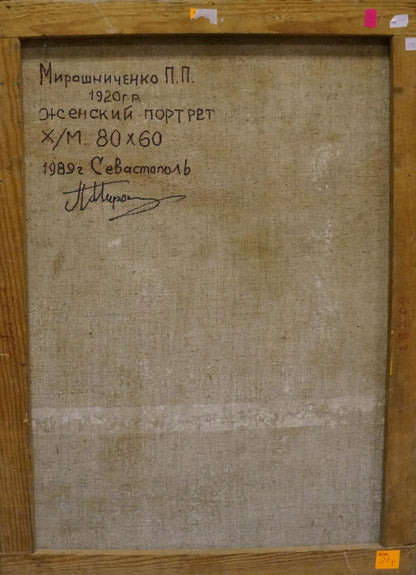 Мирошниченко П.П.
1920г.р.
женский портрет
Х/М. 80х60
1989г Севастополь